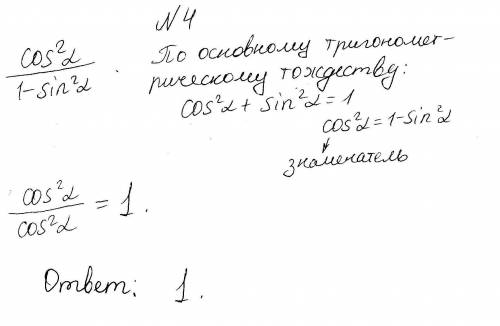 N4
cos²α / 1-sin²α . По основному тригономет-
рическому тождеству:
cos²α + sin²α = 1
cos²α = 1-sin²α
знаменатель
cos²α / cos²α = 1.
Ответ: 1.